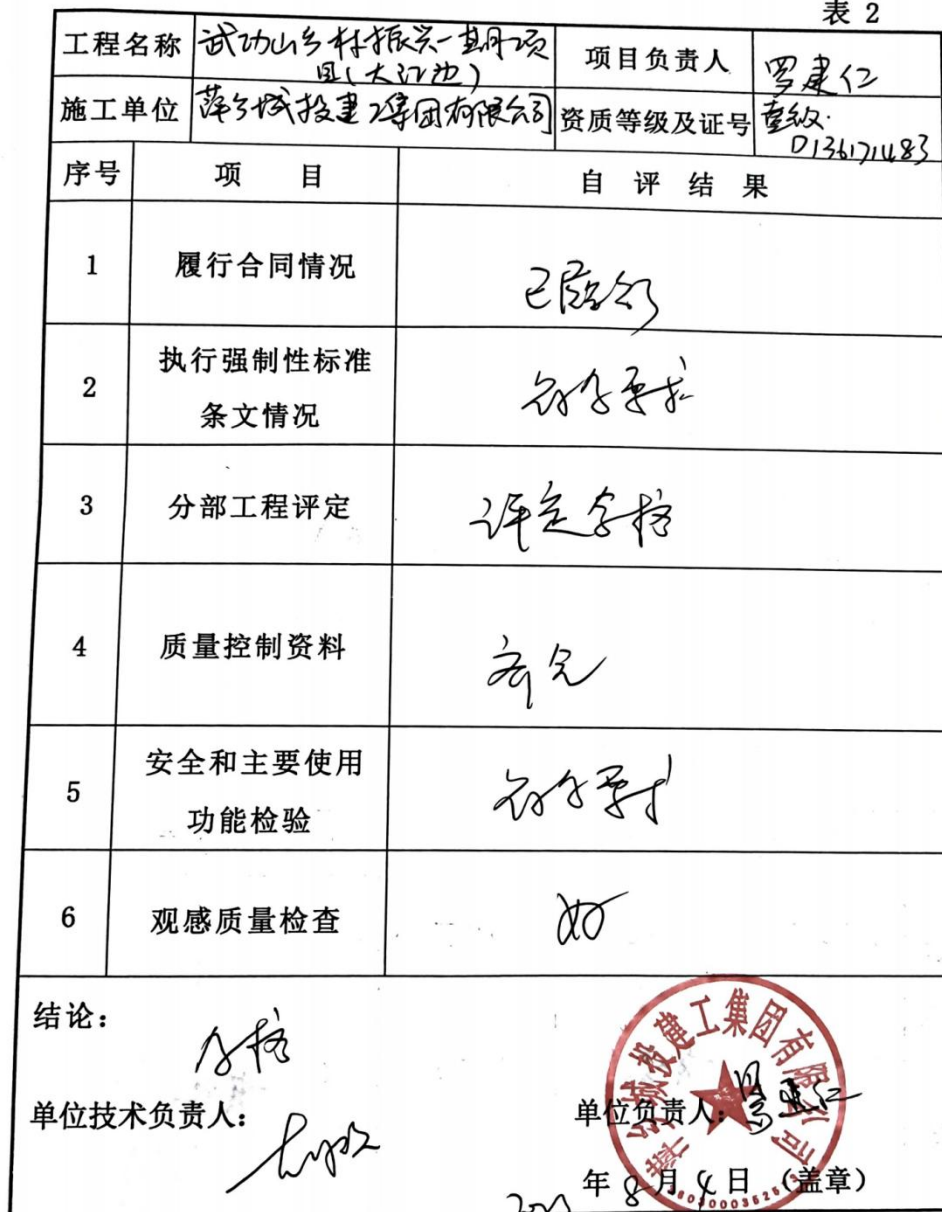 表 2
工程名称 武功山乡村振兴一期项目(大江边) 项目负责人 罗建仁
施工单位 萍乡城投建工集团有限公司 资质等级及证号 壹级
D136171483
序号 项 目 自 评 结 果
1 履行合同情况 已履行
2 执行强制性标准
条文情况 符合要求
3 分部工程评定 评定合格
4 质量控制资料 齐全
5 安全和主要使用
功能检验 符合要求
6 观感质量检查 好
结论:
合格
单位技术负责人: 单位负责人: 罗建仁
年 8 月 4 日 (盖章)
萍乡城投建工集团有限公司